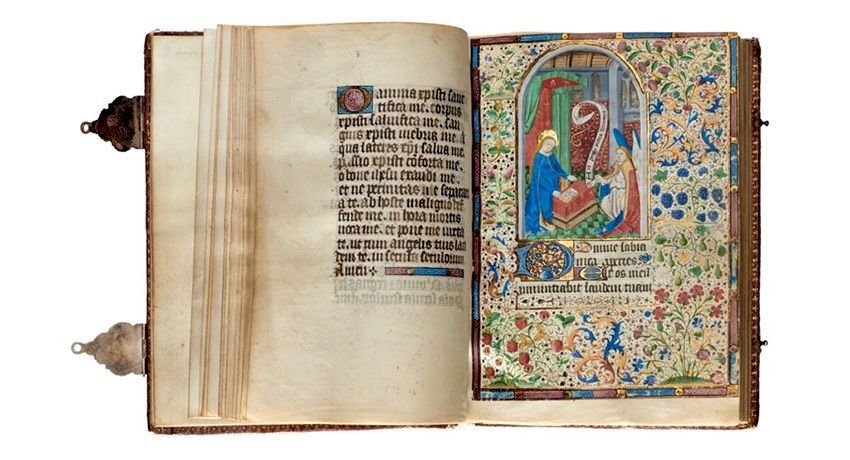 anima xpisti sanc
tifica me. corpus
xpisti salvifica me. san
guis xpisti inebria me. a
qua lateris xpi salva me.
passio xpisti coforta me.
o bone ihesu exaudi me.
et ne permittas me separari
a te. ab hoste maligno def
fende me. in hora mortis
voca me. et pone me iuxta
te. ut cum angelis tuis lau
dem te. in secula seculorum
Amen
Domine labia
mea aperies.
Et os meum
annuntiabit laudem tuam